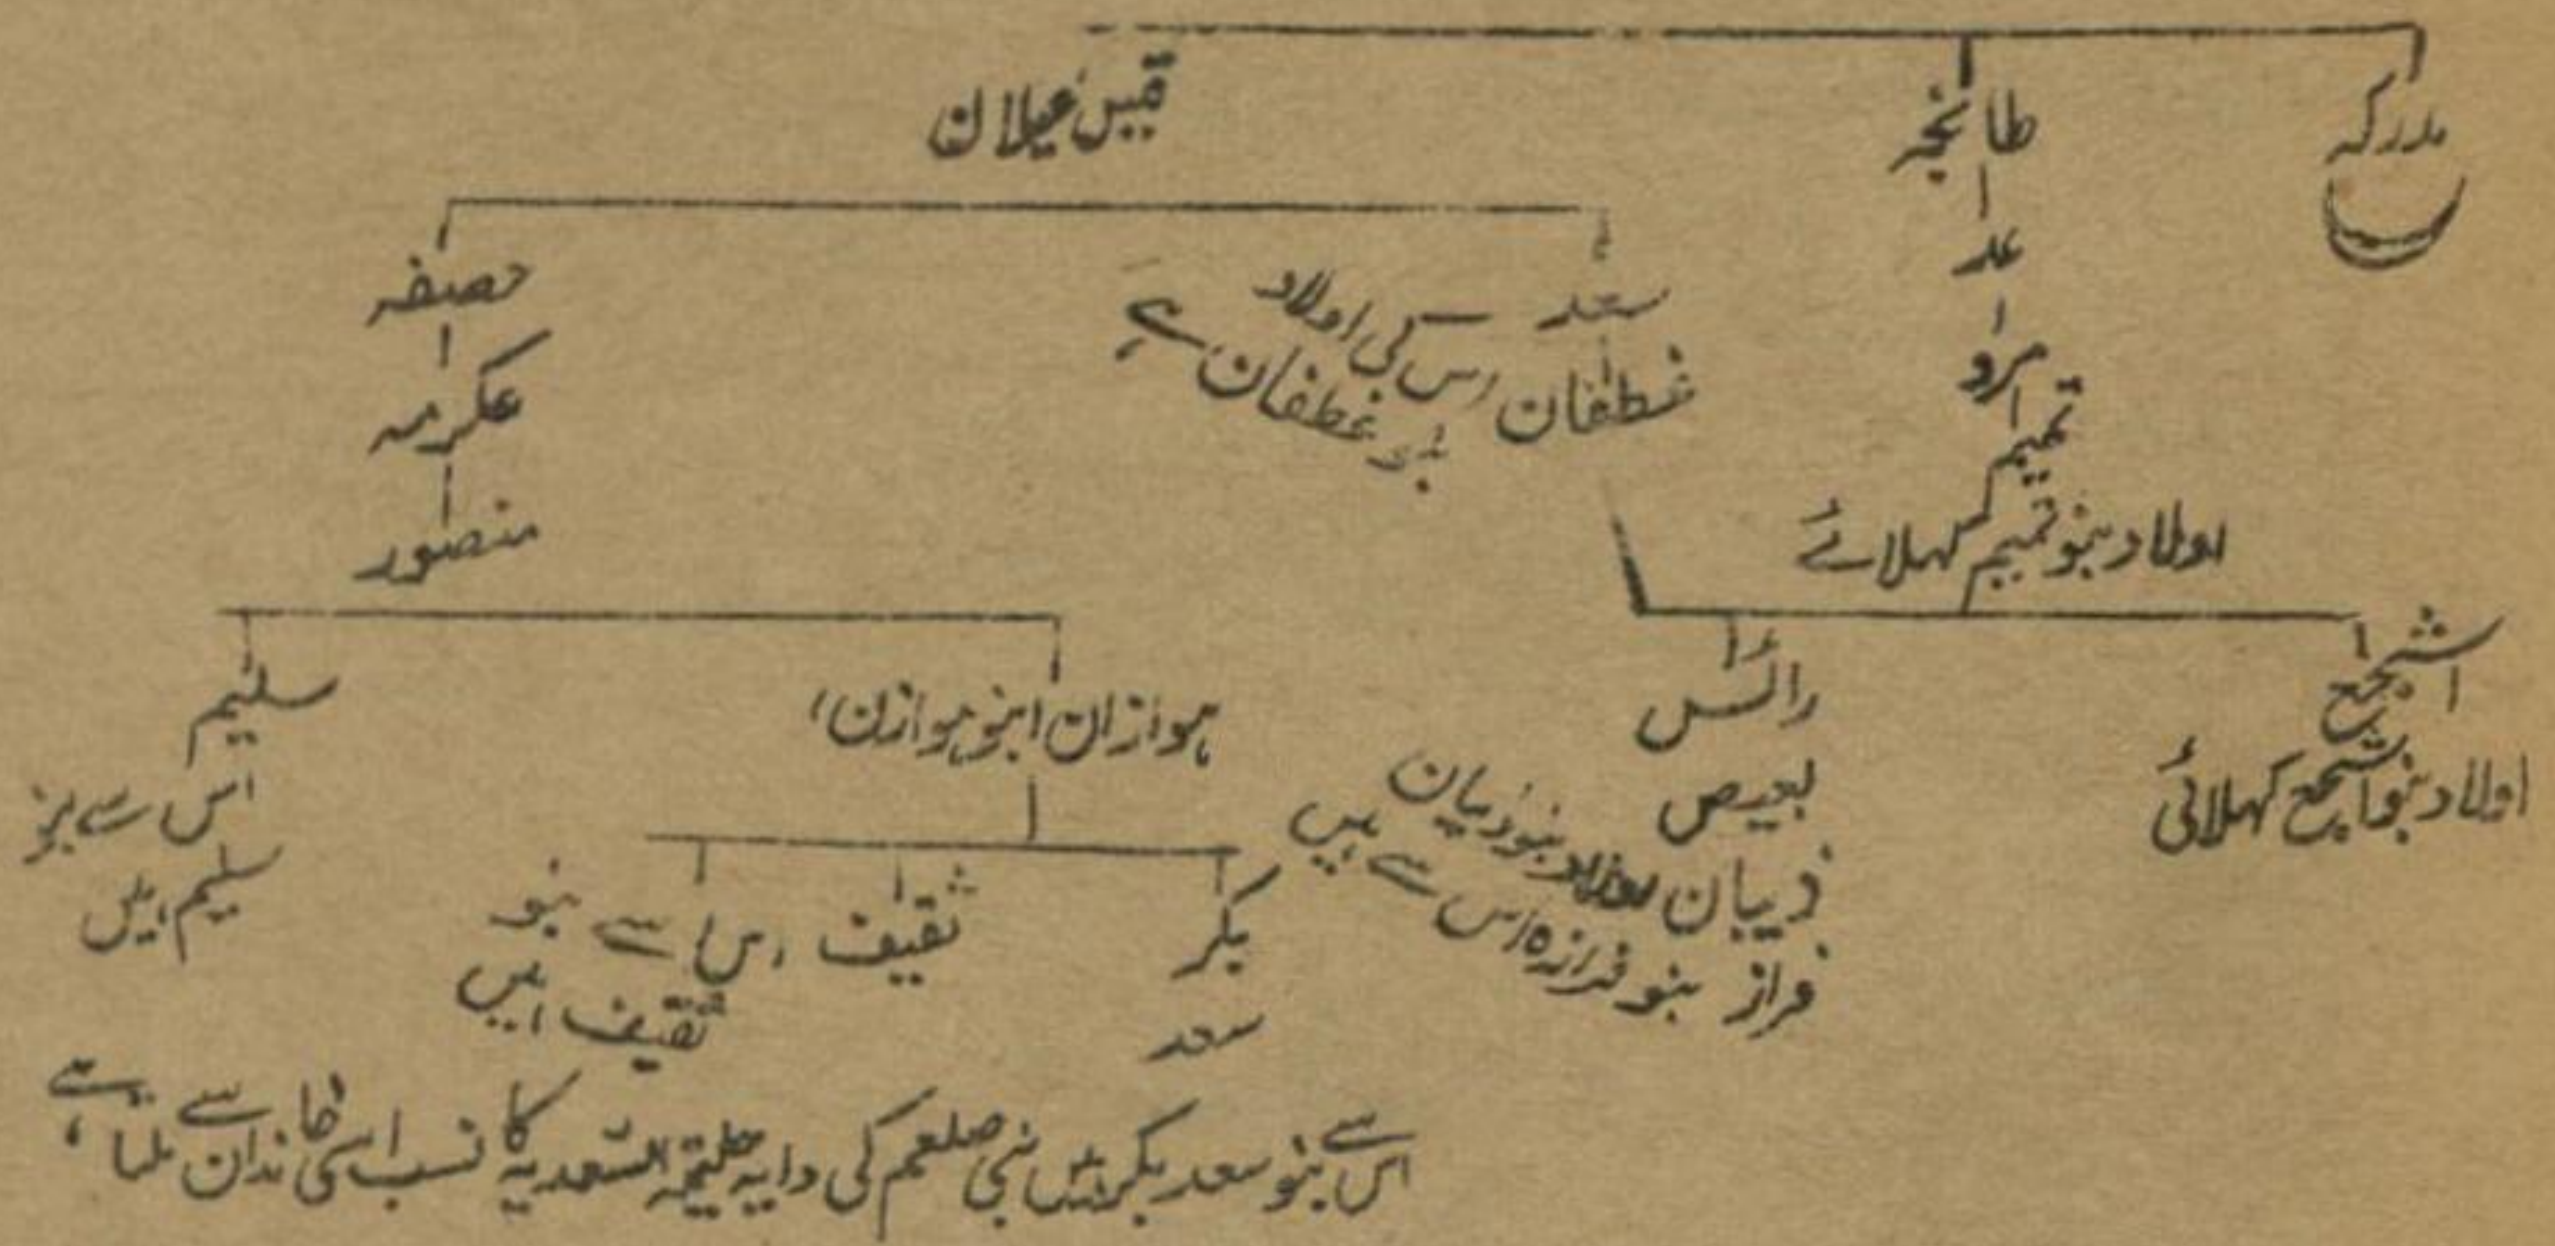 مدرکہ
طابخہ
قیس عیلان
عد
مرد
تمیم
اولاد بنو تمیم کہلائے
سعد
غطفان اس کی اولاد
بنو غطفان ہے
حصفہ
عکرمہ
منصور
اشجع
اولاد بنو اشجع کہلائی
رائس
بعیص
ذیبان اولاد بنو ذیبان
فراز بنو فرازہ اس سے ہیں
ہوازان (بنو ہوازن)
سلیم
اس سے بنو
سلیم ہیں
بکر
سعد
ثقیف اس سے بنو
ثقیف ہیں
اس سے بنو سعد بکر ہیں نبی صلعم کی دایہ حلیمہ السعدیہ کا نسب اسی خاندان سے ملتا ہے